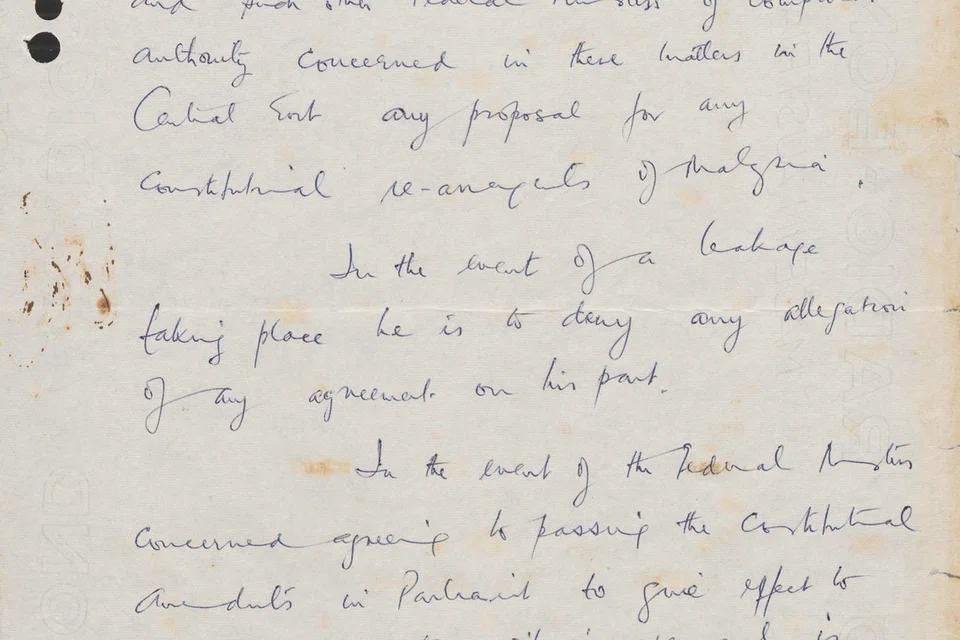 and such other Federal Ministers of competent
authority concerned in these matters in the
Central Govt any proposal for any
Constitutional re-arrangements of Malaysia.
In the event of a leakage
taking place he is to deny any allegation
of any agreement on his part.
In the event of the Federal Ministers
concerned agreeing to passing the Constitutional
Amendments in Parliament to give effect to